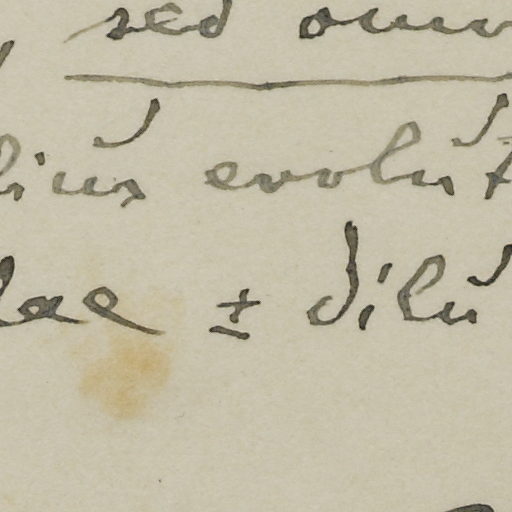 sed omn
lius evolut
lae ± dilu